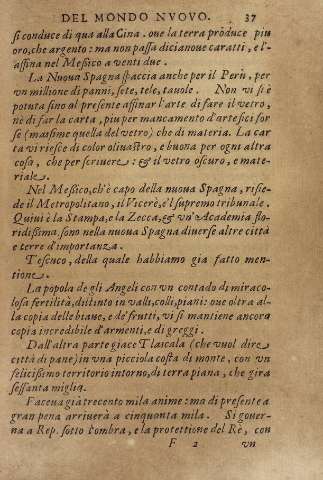 DEL MONDO NVOVO. 37
si conduce di qua alla Cina. oue la terra produce piu
oro, che argento: ma non passa dicianoue caratti, e l'-
affina nel Messico a venti due.
La Nuoua Spagna spaccia anche per il Perù, per
vn millione di panni, sete, tele, tauole. Non vi si è
potuta sino al presente assinar l'arte di fare il vetro,
nè di far la carta, piu per mancamento d'artefici for
se (massime quella del vetro) che di materia. La car
ta vi riesce di color oliuastro, e buona per ogni altra
cosa, che per scriuere: & il vetro oscuro, e mate-
riale.
Nel Messico, ch'è capo della nuoua Spagna, risie-
de il Metropolitano, il Vicerè, e'l supremo tribunale.
Quiui è la Stampa, e la Zecca, & vn'Academia flo-
ridissima, sono nella nuoua Spagna diuerse altre città
e terre d'importanza.
Tescuco, della quale habbiamo gia fatto men-
tione.
La popola de gli Angeli con vn contado di miraco-
losa fertilità, distinto in valli, colli, piani: oue oltra al-
la copia delle biaue, e de' frutti, vi si mantiene ancora
copia incredibile d'armenti, e di greggi.
Dall'altra parte giace Tlascala (che vuol dire
città di pane) in vna picciola costa di monte, con vn
felicissimo territorio intorno, di terra piana, che gira
sessanta miglia.
Faceua già trecento mila anime: ma di presente a
gran pena arriuerà a cinquanta mila. Si gouer-
na a Rep. sotto l'ombra, e la protettione del Re, con
F 2 vn